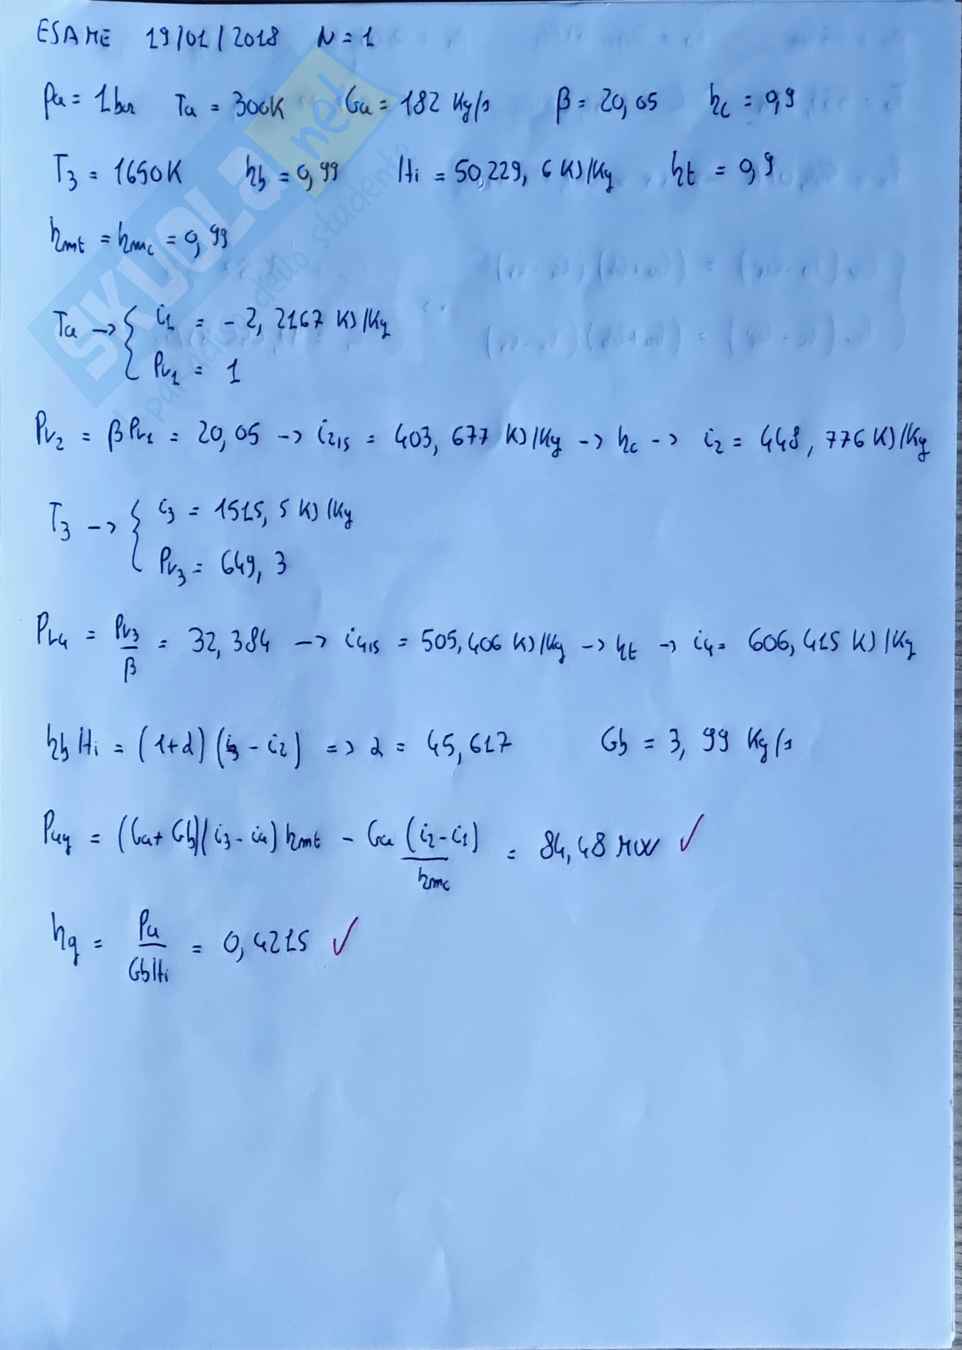 ESAME 19/01/2018 N=1
pa = 1 bar Ta = 300K Ga = 182 Kg/s β = 20,05 ηc = 0,9
T3 = 1650K ηb = 0,99 Hi = 50,229,6 KJ/Kg ηt = 0,9
ηmt = ηmc = 0,99
Ta → { i1 = -2,2167 KJ/Kg
Pr1 = 1
Pr2 = βPr1 = 20,05 → i2is = 403,677 KJ/Kg → ηc → i2 = 448,776 KJ/Kg
T3 → { i3 = 1515,5 KJ/Kg
Pr3 = 649,3
Pr4 = Pr3/β = 32,384 → i4is = 505,406 KJ/Kg → ηt → i4 = 606,415 KJ/Kg
ηb Hi = (1+α)(i3 - i2) => α = 45,617 Gb = 3,99 Kg/s
Puy = (Ga+Gb)(i3-i4)ηmt - Ga (i2-i1)/ηmc = 84,48 MW ✓
ηg = Pu/GbHi = 0,4215 ✓
SKUOLA.net